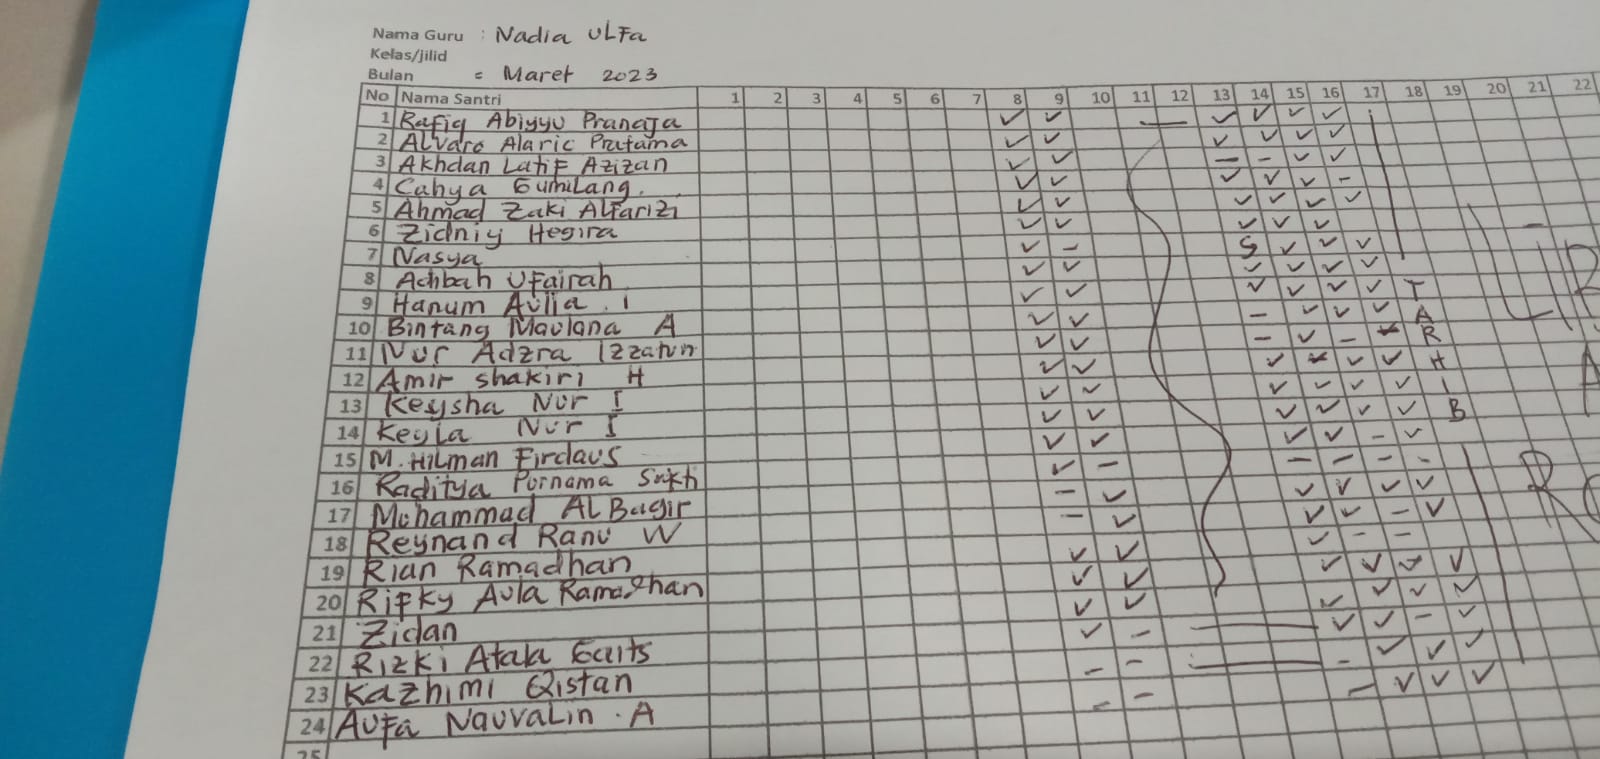 Nama Guru : Nadia ULFa
Kelas/jilid
Bulan = Maret 2023
No Nama Santri 1 2 3 4 5 6 7 8 9 10 11 12 13 14 15 16 17 18 19 20 21 22
1 Rafiq Abiyyu Pranaja ✓ ✓ — ✓ ✓ ✓ ✓
2 ALvaro Alaric Pratama ✓ ✓ ✓ ✓ ✓ ✓
3 AKhdan LatiF Azizan ✓ ✓ — – ✓ ✓
4 Cahya Gumilang. ✓ ✓ ✓ ✓ ✓ –
5 Ahmad Zaki ALFarizi ✓ ✓ ✓ ✓ ✓ ✓
6 Zidniy Hegira ✓ ✓ ✓ ✓ ✓
7 Nasya ✓ – S ✓ ✓ ✓
8 Adibah UFairah ✓ ✓ ✓ ✓ ✓ ✓
9 Hanum Aulia . I ✓ ✓ ✓ ✓ ✓ ✓ T
10 Bintang Maulana A ✓ ✓ – ✓ ✓ ✓ A
11 Nur Adzra Izzatun ✓ ✓ – ✓ – R
12 Amir shakiri H ✓ ✓ ✓ ✓ ✓ H
13 Keysha Nur I ✓ ✓ ✓ ✓ ✓ ✓ I
14 Keyla Nur I ✓ ✓ ✓ ✓ ✓ ✓ B
15 M. HILMAN Firdaus ✓ ✓ ✓ ✓ – ✓
16 Raditya Purnama ✓ – – – – –
17 Mohammad AL Bagir – ✓ ✓ ✓ ✓ ✓
18 Reynand Ranu W – ✓ ✓ ✓ – ✓
19 Rian Ramadhan ✓ ✓ ✓ – –
20 RiFky Aula Ramadhan ✓ ✓ ✓ ✓ ✓ ✓
21 Zidan ✓ ✓ ✓ ✓ ✓ ✓
22 Rizki Atala ✓ – — ✓ ✓ – ✓
23 Kazhimi Qistan – – — – ✓ ✓ ✓
24 AuFa NauvaLin . A – – — ✓ ✓ ✓
25